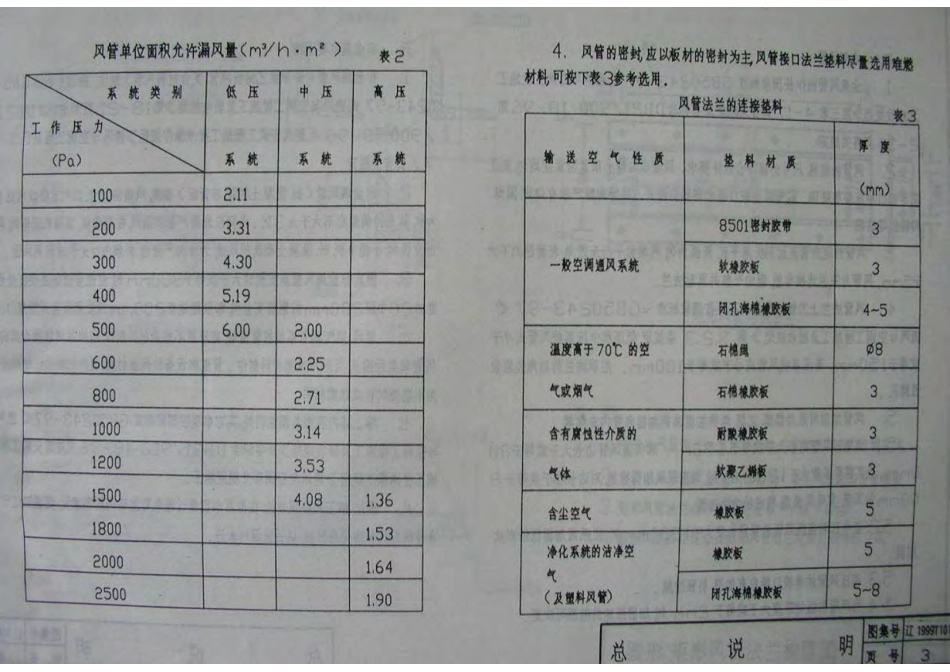 风管单位面积允许漏风量(m³/h·m²) 表2
系统类别 低压 中压 高压
工作压力
(Pa) 系统 系统 系统
100 2.11
200 3.31
300 4.30
400 5.19
500 6.00 2.00
600 2.25
800 2.71
1000 3.14
1200 3.53
1500 4.08 1.36
1800 1.53
2000 1.64
2500 1.90
4. 风管的密封,应以板材的密封为主,风管接口法兰垫料尽量选用难燃
材料,可按下表3参考选用.
风管法兰的连接垫料 表3
输送空气性质 垫料材质 厚度
(mm)
8501密封胶带 3
一般空调通风系统 软橡胶板 3
闭孔海棉橡胶板 4~5
温度高于70℃的空 石棉绳 ø8
气或烟气 石棉橡胶板 3
含有腐蚀性介质的 耐酸橡胶板 3
气体 软聚乙烯板 3
含尘空气 橡胶板 5
净化系统的洁净空 橡胶板 5
气
(及塑料风管) 闭孔海棉橡胶板 5~8
总说明 图集号 辽1999T101
页号 3